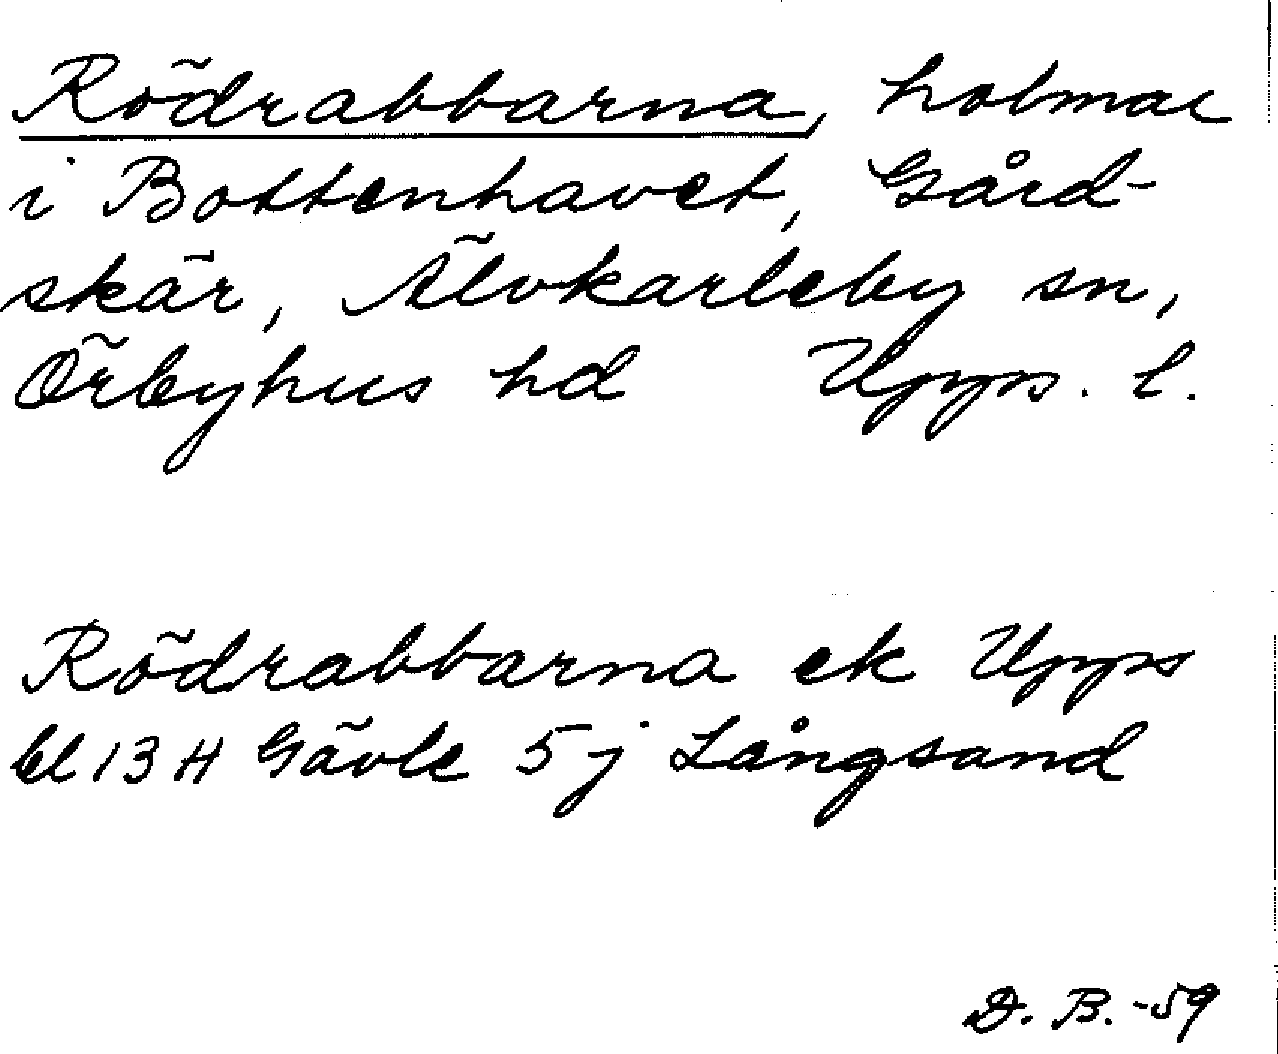 Rödrabbarna, holmar
i Bottenhavet, Gård-
skär, Älvkarleby sn,
Örbyhus hd Upps. l.
Rödrabbarna ek Upps
bl 13 H Gävle 5 j Långsand
D. B. -59